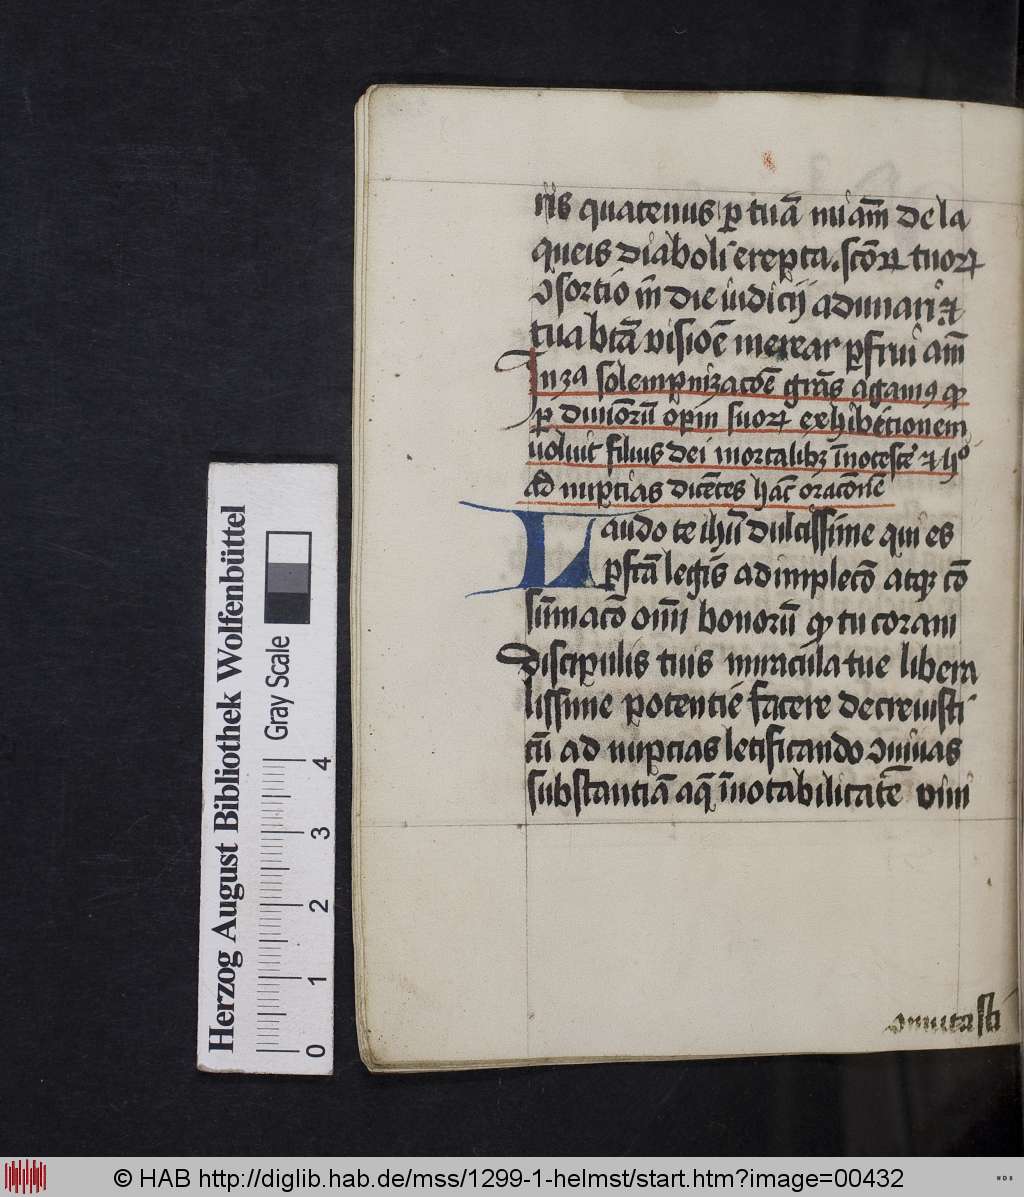 nis quatenus ꝑ tuā miā̄m de la
queis diaboli erepta. scōꝝ tuoꝝ
ꝯsortio in die iudicij adunari ⁊
tua btā̄ visiōe merear ꝑfrui am̄
In 3ᵃ solempnizacōe grās agamꝰ ꝙ
ꝑ diuinoꝝ operū suoꝝ exhibicionem
uoluit filius dei mortalibꝫ īnotescẽ ⁊ hº
ad nupcias dicētes hāc oracōnē
Laudo te ihū dulcissime qui es
ꝑfctā legis adimplecō atqꝫ cō
sūmacō om̄i bonorū ꝙ tu coram
discipulis tuis miracula tue libera
lissime potencie facere decreuisti
cū ad nupcias letificando ꝯuiuas
substantiā aq̄ īnotabilitatē vini
ꝯmutasti
Herzog August Bibliothek Wolfenbüttel
Gray Scale
0 1 2 3 4
© HAB http://diglib.hab.de/mss/1299-1-helmst/start.htm?image=00432